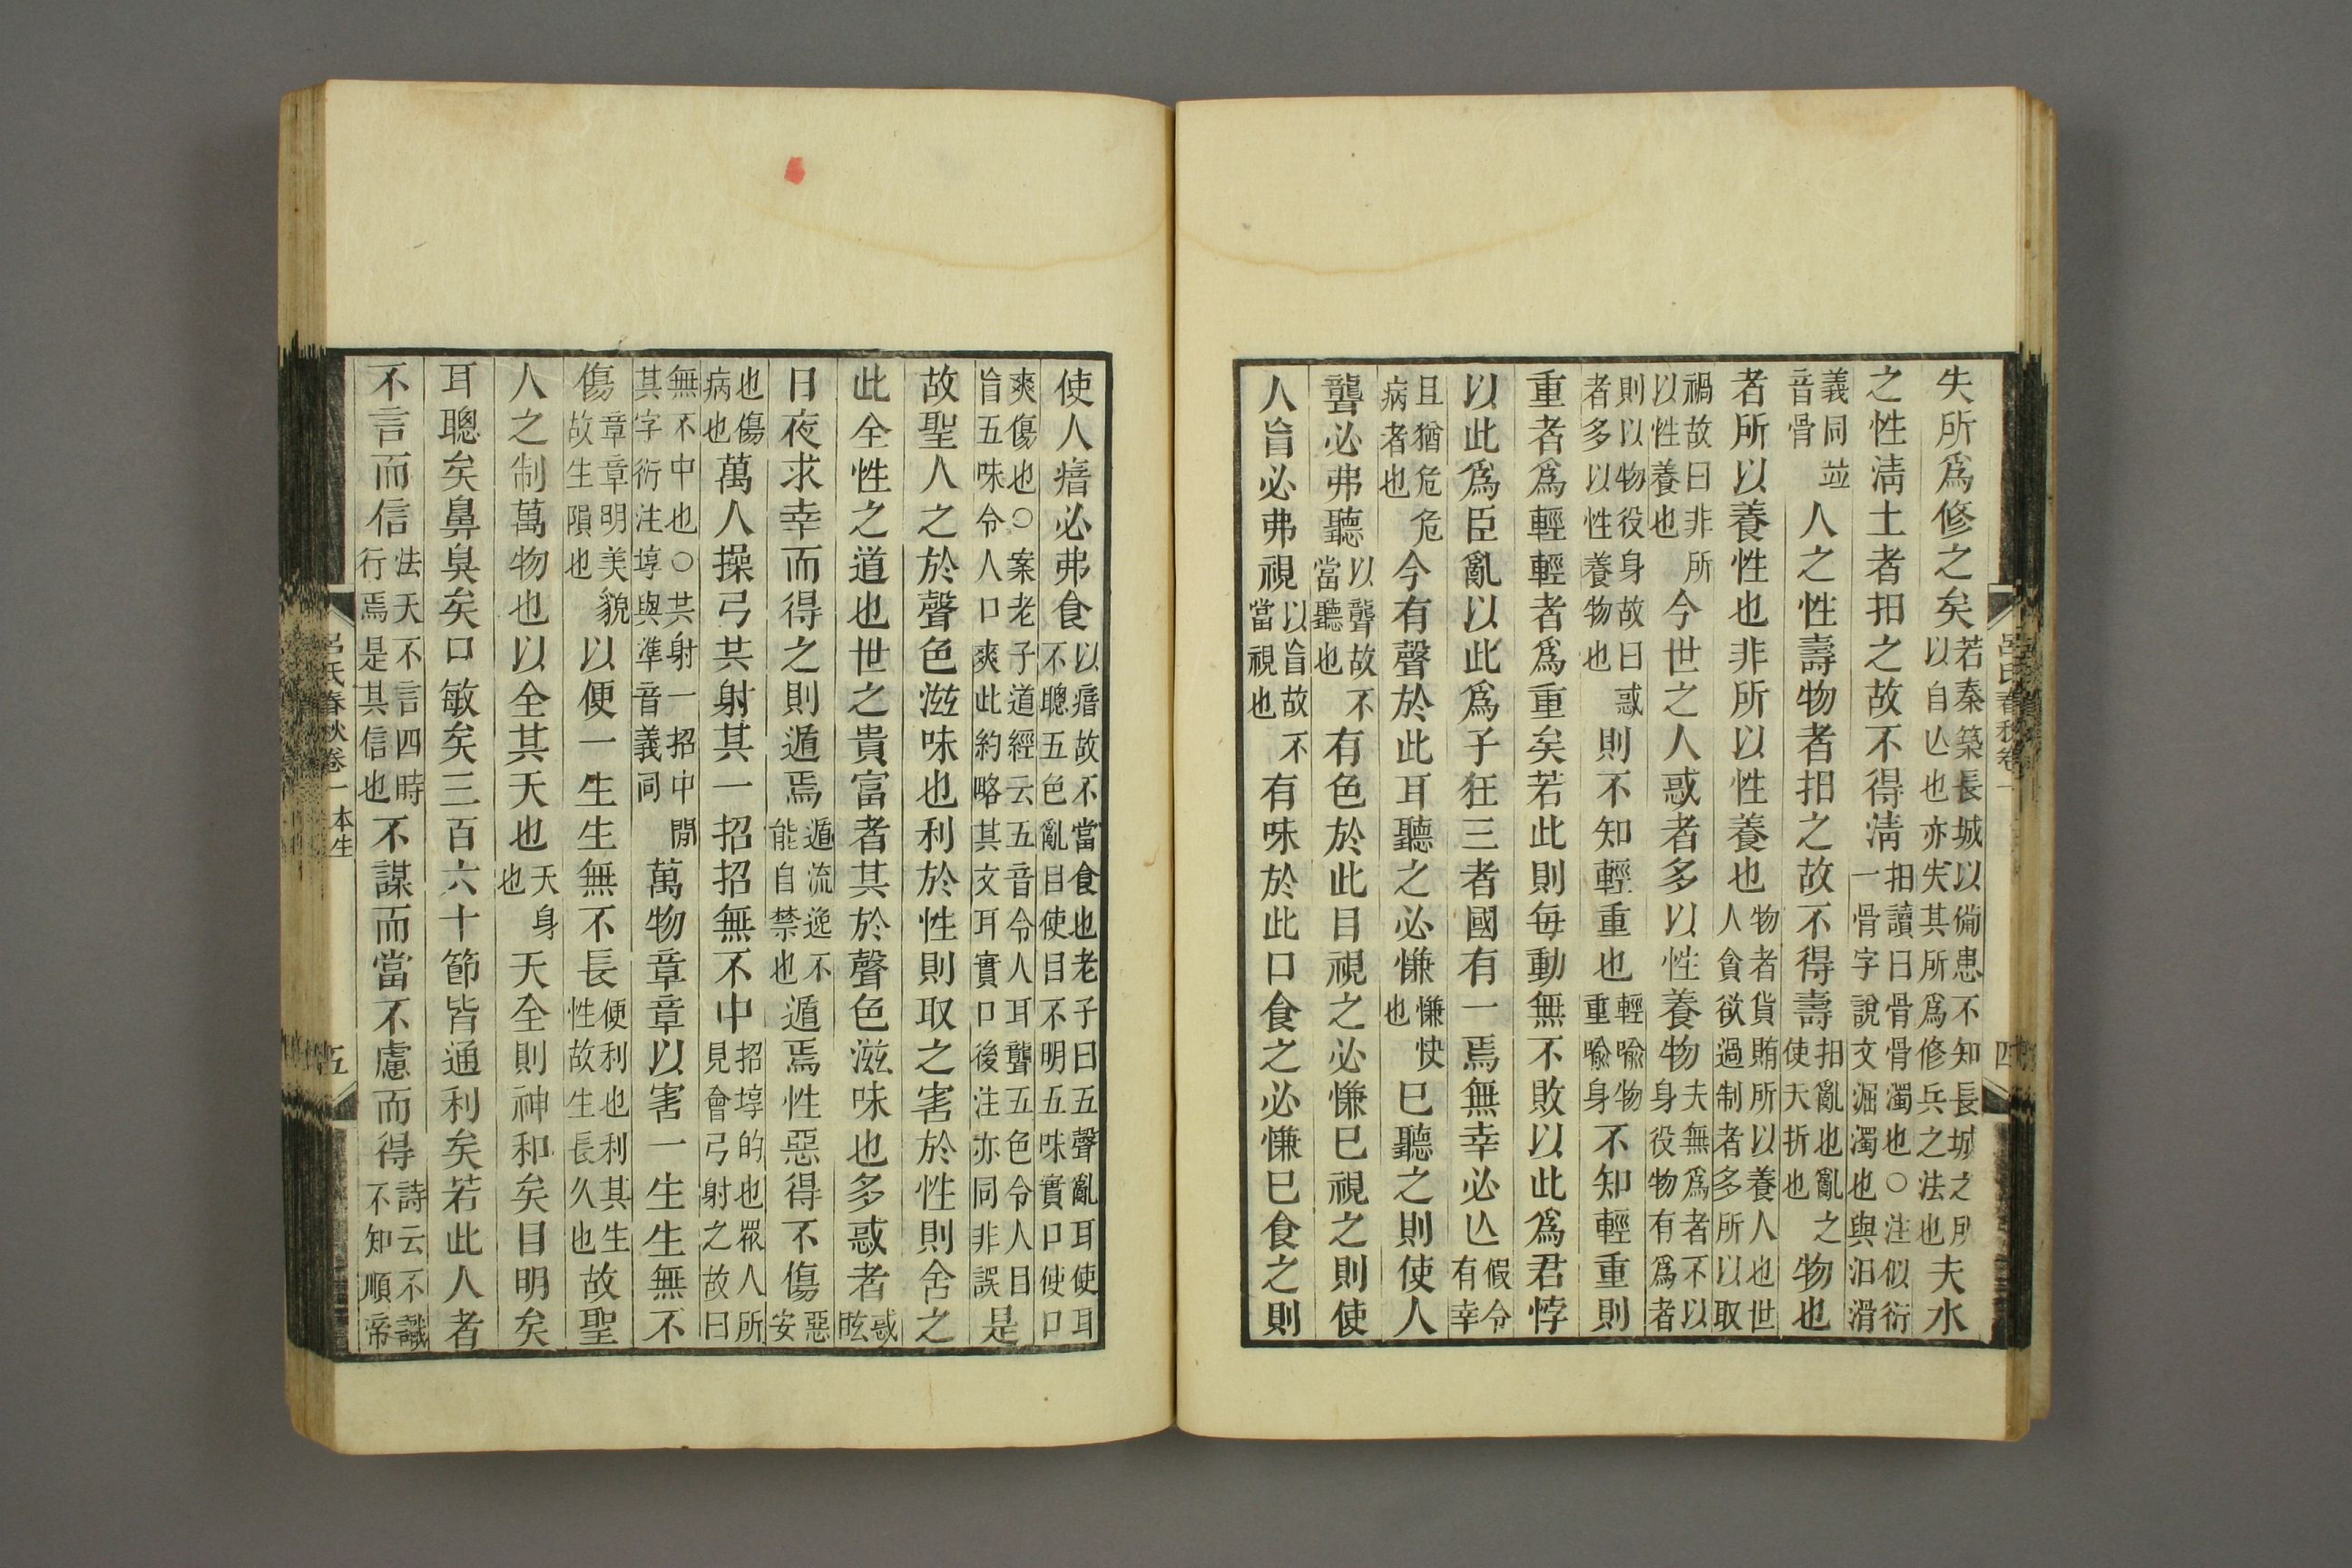 失所爲修之矣若秦築長城以備患不知長城之所以自亾也亦失其所爲修兵之法也夫水
之性淸土者抇之故不得淸抇讀曰骨骨濁也○注似衍一骨字說文淈濁也與汨滑
義同並音骨人之性壽物者抇之故不得壽抇亂也亂之使夭折也物也
者所以養性也非所以性養也物者貨賄所以養人也世人貪欲過制者多所以取
禍故曰非所以性養也今世之人惑者多以性養物夫無爲者不以身役物有爲者
則以物役身故曰惑者多以性養物也則不知輕重也輕喻物重喻身不知輕重則
重者爲輕輕者爲重矣若此則每動無不敗以此爲君悖
以此爲臣亂以此爲子狂三者國有一焉無幸必亾假令有幸
且猶危危病者也今有聲於此耳聽之必慊慊快也已聽之則使人
聾必弗聽以聾故不當聽也有色於此目視之必慊已視之則使
人盲必弗視以盲故不當視也有味於此口食之必慊已食之則
呂氏春秋卷一
四
使人瘖必弗食以瘖故不當食也老子曰五聲亂耳使耳不聰五色亂目使目不明五味實口使口
爽傷也○案老子道經云五音令人耳聾五色令人目盲五味令人口爽此約略其文耳實口後注亦同非誤是
故聖人之於聲色滋味也利於性則取之害於性則舍之
此全性之道也世之貴富者其於聲色滋味也多惑者惑眩
日夜求幸而得之則遁焉遁流逸不能自禁也遁焉性惡得不傷惡安
也傷病也萬人操弓共射其一招招無不中招埻的也眾人所見會弓射之故曰
無不中也○共射一招中閒其字衍注埻與準音義同萬物章章以害一生生無不
傷章章明美貌故生隕也以便一生生無不長便利也利其生性故生長久也故聖
人之制萬物也以全其天也天身也天全則神和矣目明矣
耳聰矣鼻臭矣口敏矣三百六十節皆通利矣若此人者
不言而信法天不言四時行焉是其信也不謀而當不慮而得詩云不識不知順帝
呂氏春秋卷一 本生
五